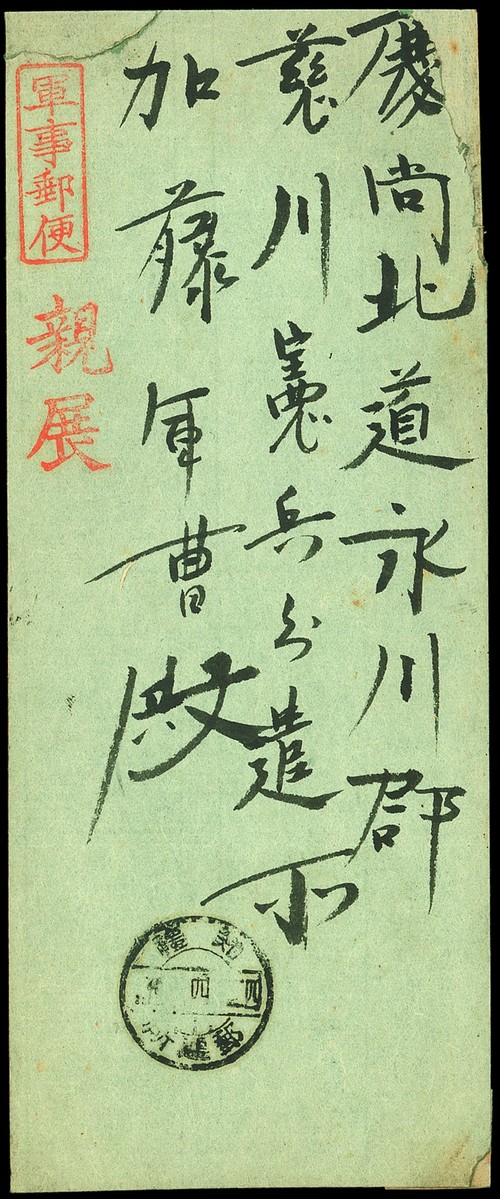 慶尚北道永川郡
慈川憲兵分遣所
加藤軍曹殿
軍事郵便
親展